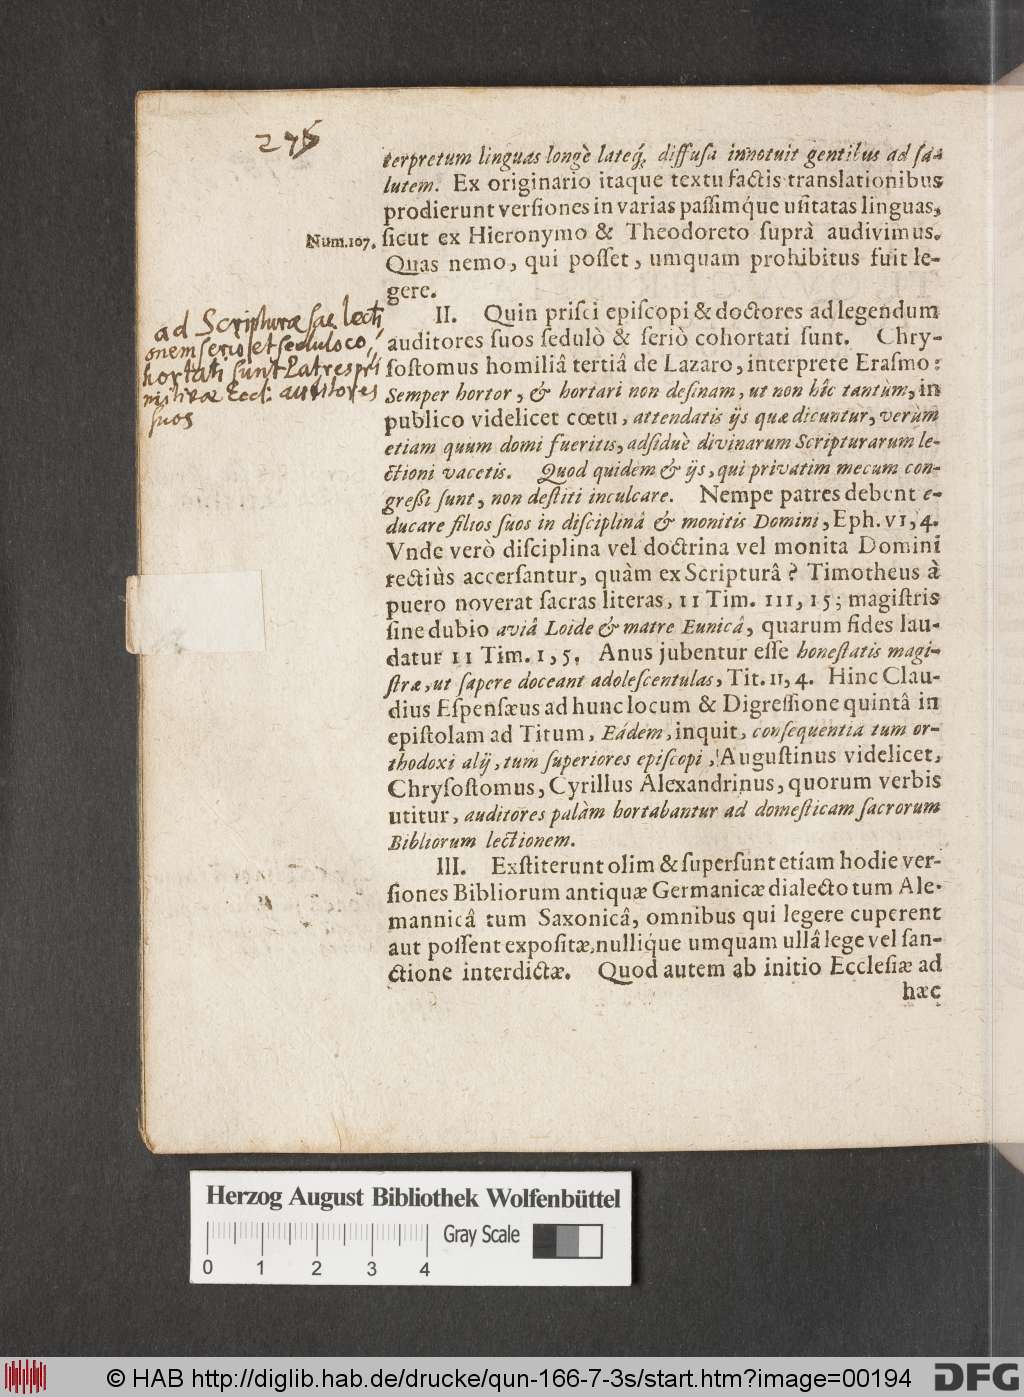 275
terpretum linguas longè lateq́; diffusa innotuit gentibus ad sa-
lutem. Ex originario itaque textu factis translationibus
prodierunt versiones in varias passimq́ue usitatas linguas,
Num. 107.
sicut ex Hieronymo & Theodoreto suprà audivimus.
Quas nemo, qui posset, umquam prohibitus fuit le-
gere.
II. Quin prisci episcopi & doctores ad legendum
auditores suos sedulò & seriò cohortati sunt. Chry-
sostomus homiliâ tertiâ de Lazaro, interprete Erasmo:
Semper hortor, & hortari non desinam, ut non hîc tantùm, in
publico videlicet cœtu, attendatis ijs quæ dicuntur, verùm
etiam quum domi fueritis, adsiduè divinarum Scripturarum le-
ctioni vacetis. Quod quidem & ijs, qui privatim mecum con-
gressi sunt, non destiti inculcare. Nempe patres debent e-
ducare filios suos in disciplinâ & monitis Domini, Eph. VI, 4.
Vnde verò disciplina vel doctrina vel monita Domini
rectiùs accersantur, quàm ex Scripturâ? Timotheus à
puero noverat sacras literas, II Tim. III, 15; magistris
sine dubio aviâ Loide & matre Eunicâ, quarum fides lau-
datur II Tim. I, 5. Anus jubentur esse honestatis magi-
stræ, ut sapere doceant adolescentulas, Tit. II, 4. Hinc Clau-
dius Espensæus ad hunc locum & Digressione quintâ in
epistolam ad Titum, Eâdem, inquit, consequentia tum or-
thodoxi alij, tum superiores episcopi, Augustinus videlicet,
Chrysostomus, Cyrillus Alexandrinus, quorum verbis
utitur, auditores palàm hortabantur ad domesticam sacrorum
Bibliorum lectionem.
III. Exstiterunt olim & supersunt etiam hodie ver-
siones Bibliorum antiquæ Germanicæ dialecto tum Ale-
mannicâ tum Saxonicâ, omnibus qui legere cuperent
aut possent expositæ, nulliq́ue umquam ullâ lege vel san-
ctione interdictæ. Quod autem ab initio Ecclesiæ ad
hæc
ad Scripturæ sac lecti
onem serio et sedulo co,
hortati sunt Patres pri
mitivæ Eccl: auditores
suos
Herzog August Bibliothek Wolfenbüttel
Gray Scale
0 1 2 3 4
© HAB http://diglib.hab.de/drucke/qun-166-7-3s/start.htm?image=00194
DFG